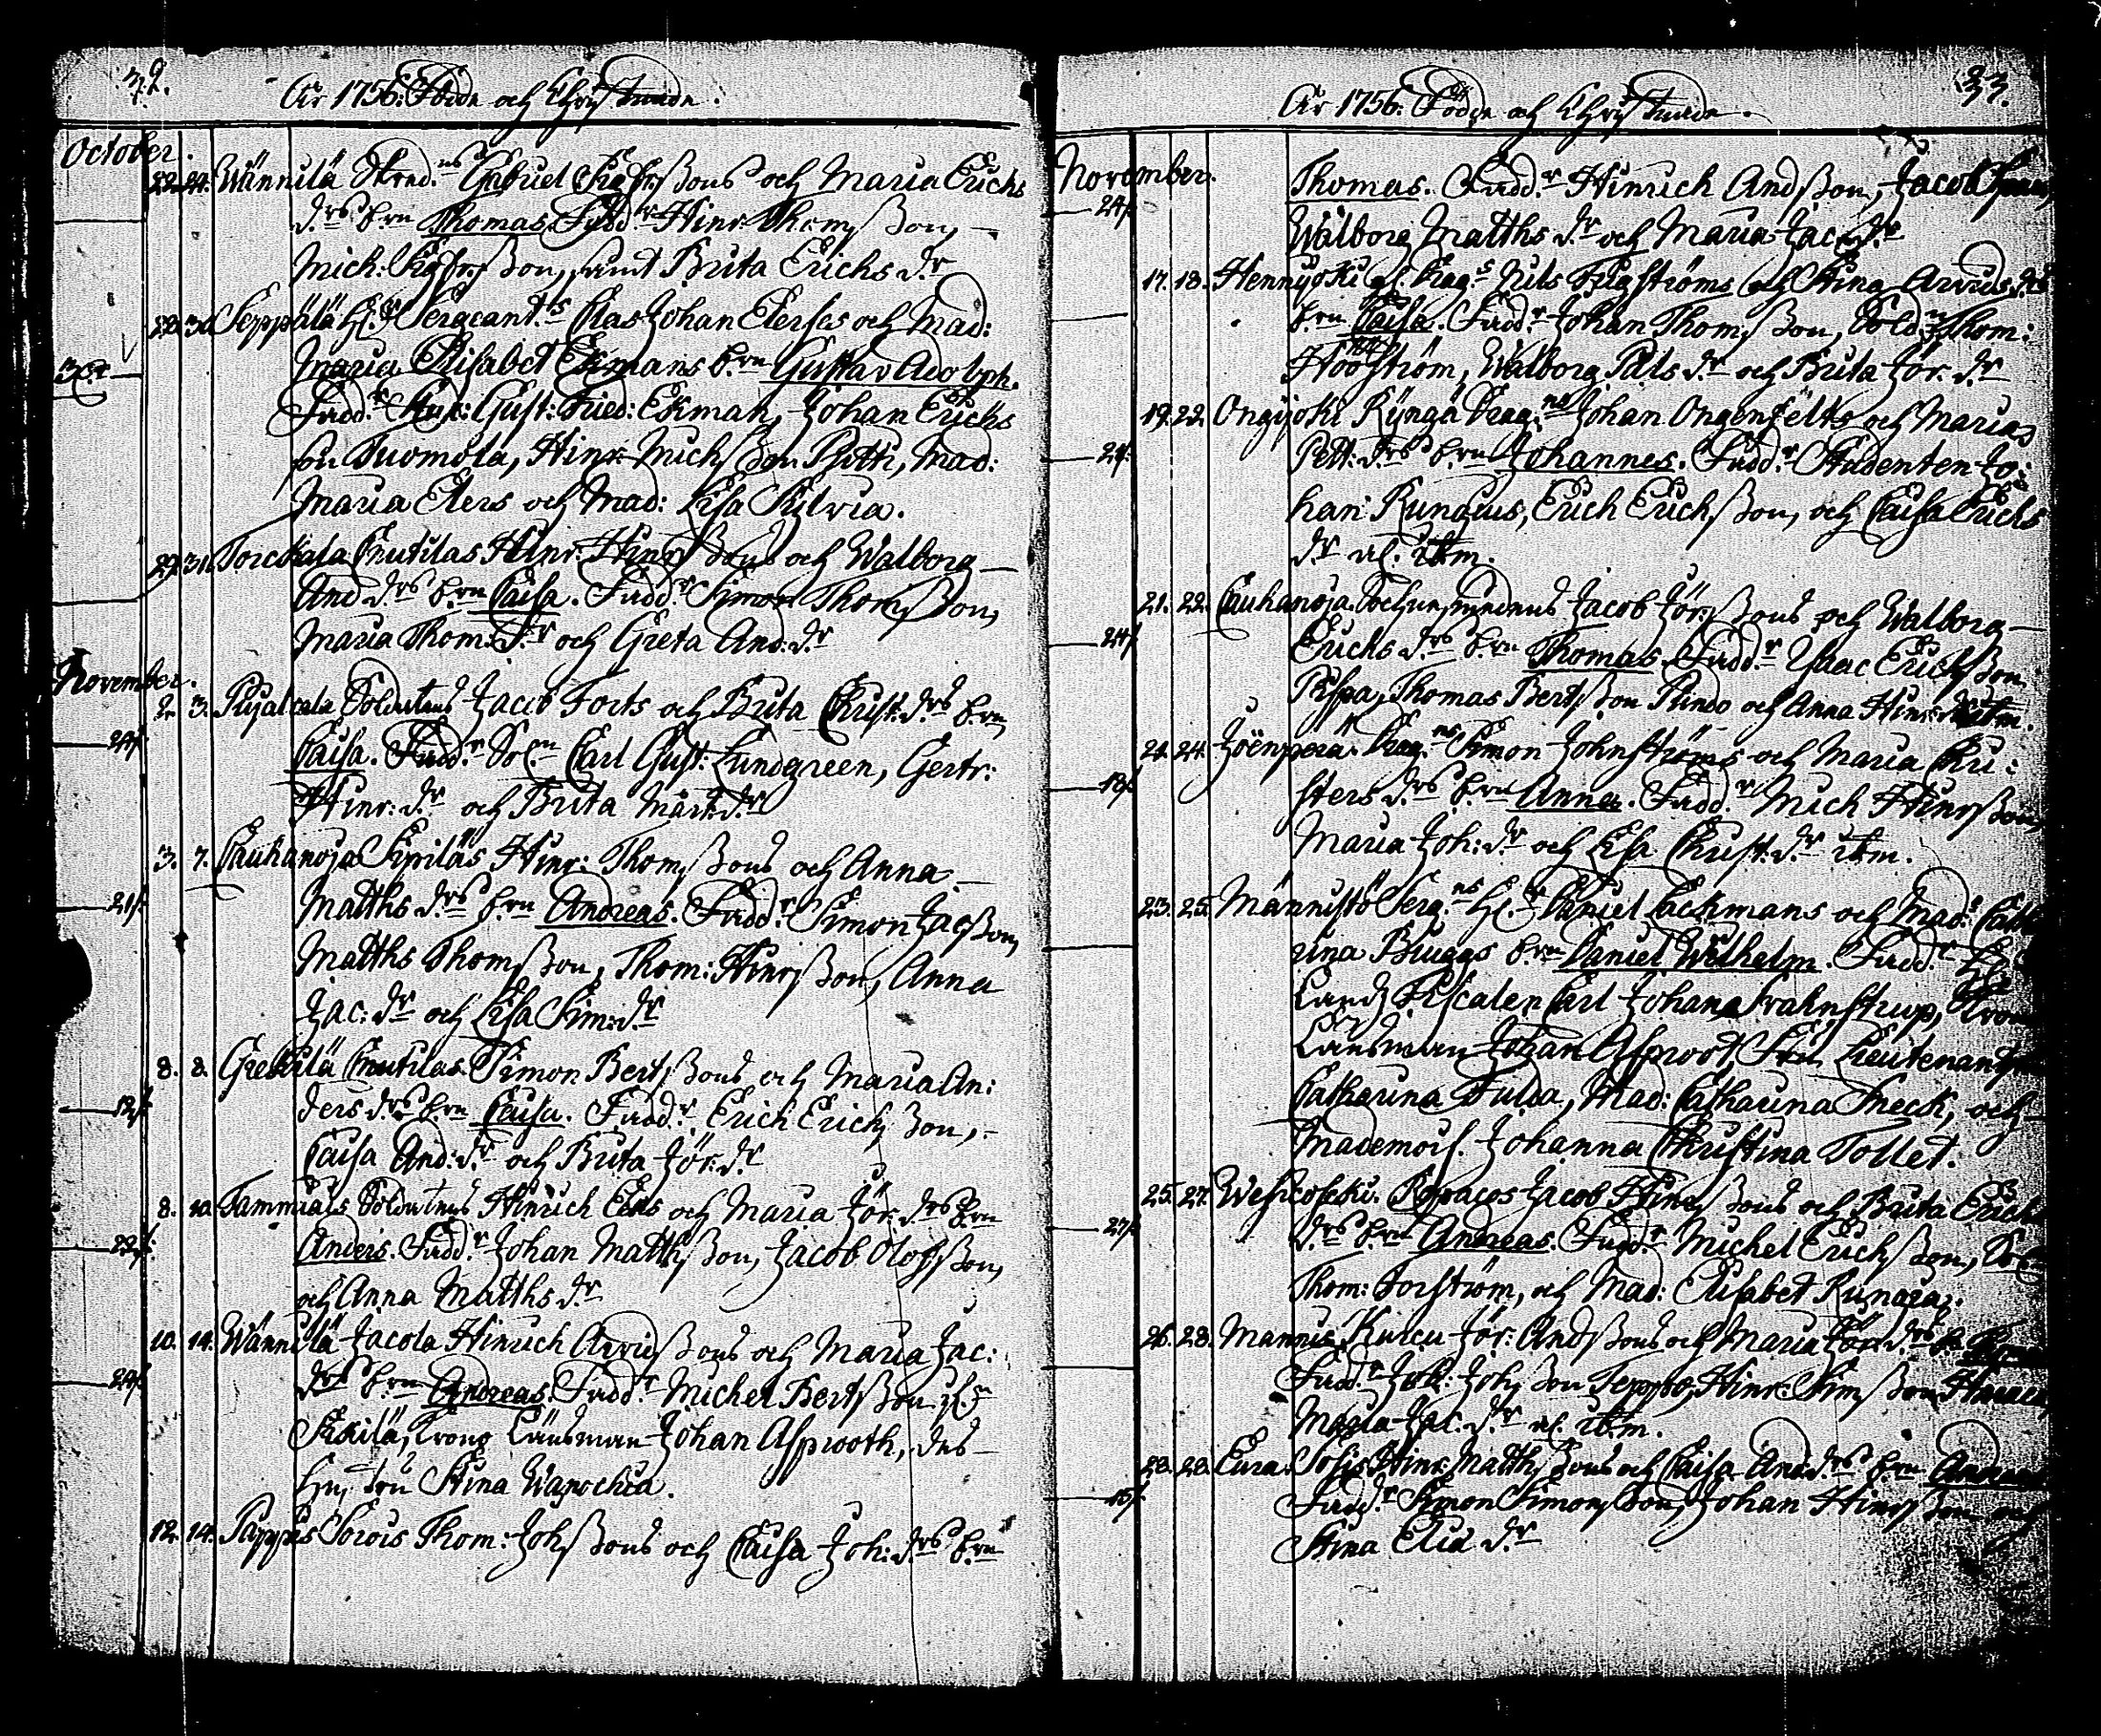 32.
År 1756: Födde och Christnade.
October.
22. 24. Wännilä Skred:ns Gabriel Sig:frßons och Maria Erichs
d:rs b:rn Thomas. Fadd:r Hinr: Thomßon,
Mich: Sigfr:ßon, samt Brita Erichs d:r
28. 30. Seppälä H:r Sergeant:s Clas Johan Elerses och Mad:
30
Maria Elisabet Ekmans b:rn Gustav Adolph.
Fadd:r Stud: Gust: Fried: Ekman, Johan Erichs
son Tuomola, Hinr: Michßon Pritti, Mad:
Maria Elers och Mad: Lisa Kilvia.
29. 31. Torckala Cnutilas Hinr: Hinrßons och Walborg
And d:rs b:rn Caisa. Fadd:r Simon Thomßon,
Maria Thom: d:r och Greta And: d:r
November.
2. 3. Pyjalcala Soldatens Jacob Forts och Brita Christ: d:rs b:rn
24
Caisa. Fadd:r Carl Gust: Lundgreen, Gertr:
Hinr: d:r och Brita Mårt: d:r
3. 7. Cauhanoja Sipiläs Hinr: Thomßons och Anna
21
Matths d:rs b:rn Andreas. Fadd:r Simon Jacßon,
Matths Thomßon, Thom: Hinrßon, Anna
Jac: d:r och Lisa Sim: d:r
8. 8. Greckilä Cnutilas Simon Bertßons och Maria An:
12
ders d:rs b:rn Caisa. Fadd:r Erich Erichßon,
Caisa And: d:r och Brita Jör: d:r
8. 10. Tammiais Soldatens Hinrich Eeks och Maria Jör: d:rs b:rn
22
Anders. Fadd:r Johan Matthßon, Jacob Olofsßon,
och Anna Matths d:r
10. 14. Wännilä Jacola Hinrich Arvidßons och Maria Jac:
24
d:rs b:rn Andreas. Fadd:r Michel Bertßon
Skailä, Crono Länsman Johan Aspwoth, des
hustru Stina Wanochia.
12. 14. Pappis Sorois Thom: Johßons och Caisa Joh: d:rs b:rn
33.
År 1756: Födde och Christnade.
November.
Thomas. Fadd:r Hinrich Andßon, Jacob
24
Walborg Matths d:r och Maria Jac: d:r
17. 18. Hennijoki Drag:s Nils Flygströms och Stina Arvids d:rs
b:rn Caisa. Fadd:r Johan Thomßon, Sold:n Thom:
Hofström, Walborg Påls d:r och Brita Jör: d:r
19. 22. Ongijoki Kyngä Drag:ns Johan Ongenfelts och Marias
24
Pett: d:rs b:rn Johannes. Fadd:r Studenten Jo:
han Rungius, Erich Erichßon, och Caisa Erichs
d:r
21. 22. Cauhanoja Sochnesmedens Jacob Jör:ßons och Walborg
24
Erichs d:rs b:rn Thomas. Fadd:r Ysaac Erichßon
Pispa, Thomas Bertßon Pindo och Anna Hinr:
22. 24. Joenperä Drag:ns Simon Johnströms och Maria Chri:
18
sters d:rs b:rn Anna. Fadd:r Mich Hinrßon,
Maria Joh: d:r och Lisa Christ: d:r
23. 25. Männistö Serg:ns H:r Daniel Lackmans och Mad: Catha
rina Bruggs b:rn Daniel Wilhelm. Fadd:r
Lands Fiscalen Carl Johan Frahnstrup, Crono
Länsman Johan Aspwoot, Fru Lieutenant
Catharina Fulda, Mad: Catharina Sneck, och
Mademois: Johanna Christina Tollet.
25. 27. Wesicoscki Ropacos Jacob Hinrßons och Brita Erichs
27
d:rs b:rn Andreas. Fadd:r Michel Erichßon,
Thom: Forström, och Mad: Elisabet Rungia.
26. 28. Mannis Kuicu Jör: Andßons och Maria d:rs
Fadd:r Joh: Johßon Seppo, Hinr: Simßon
Maria Jac: d:r
28. 28. Eura Sohis Hinr: Matthßons och Caisa And: d:rs b:rn
15
Fadd:r Simon Simonßon, Johan Hinrßon
Stina Elia d:r